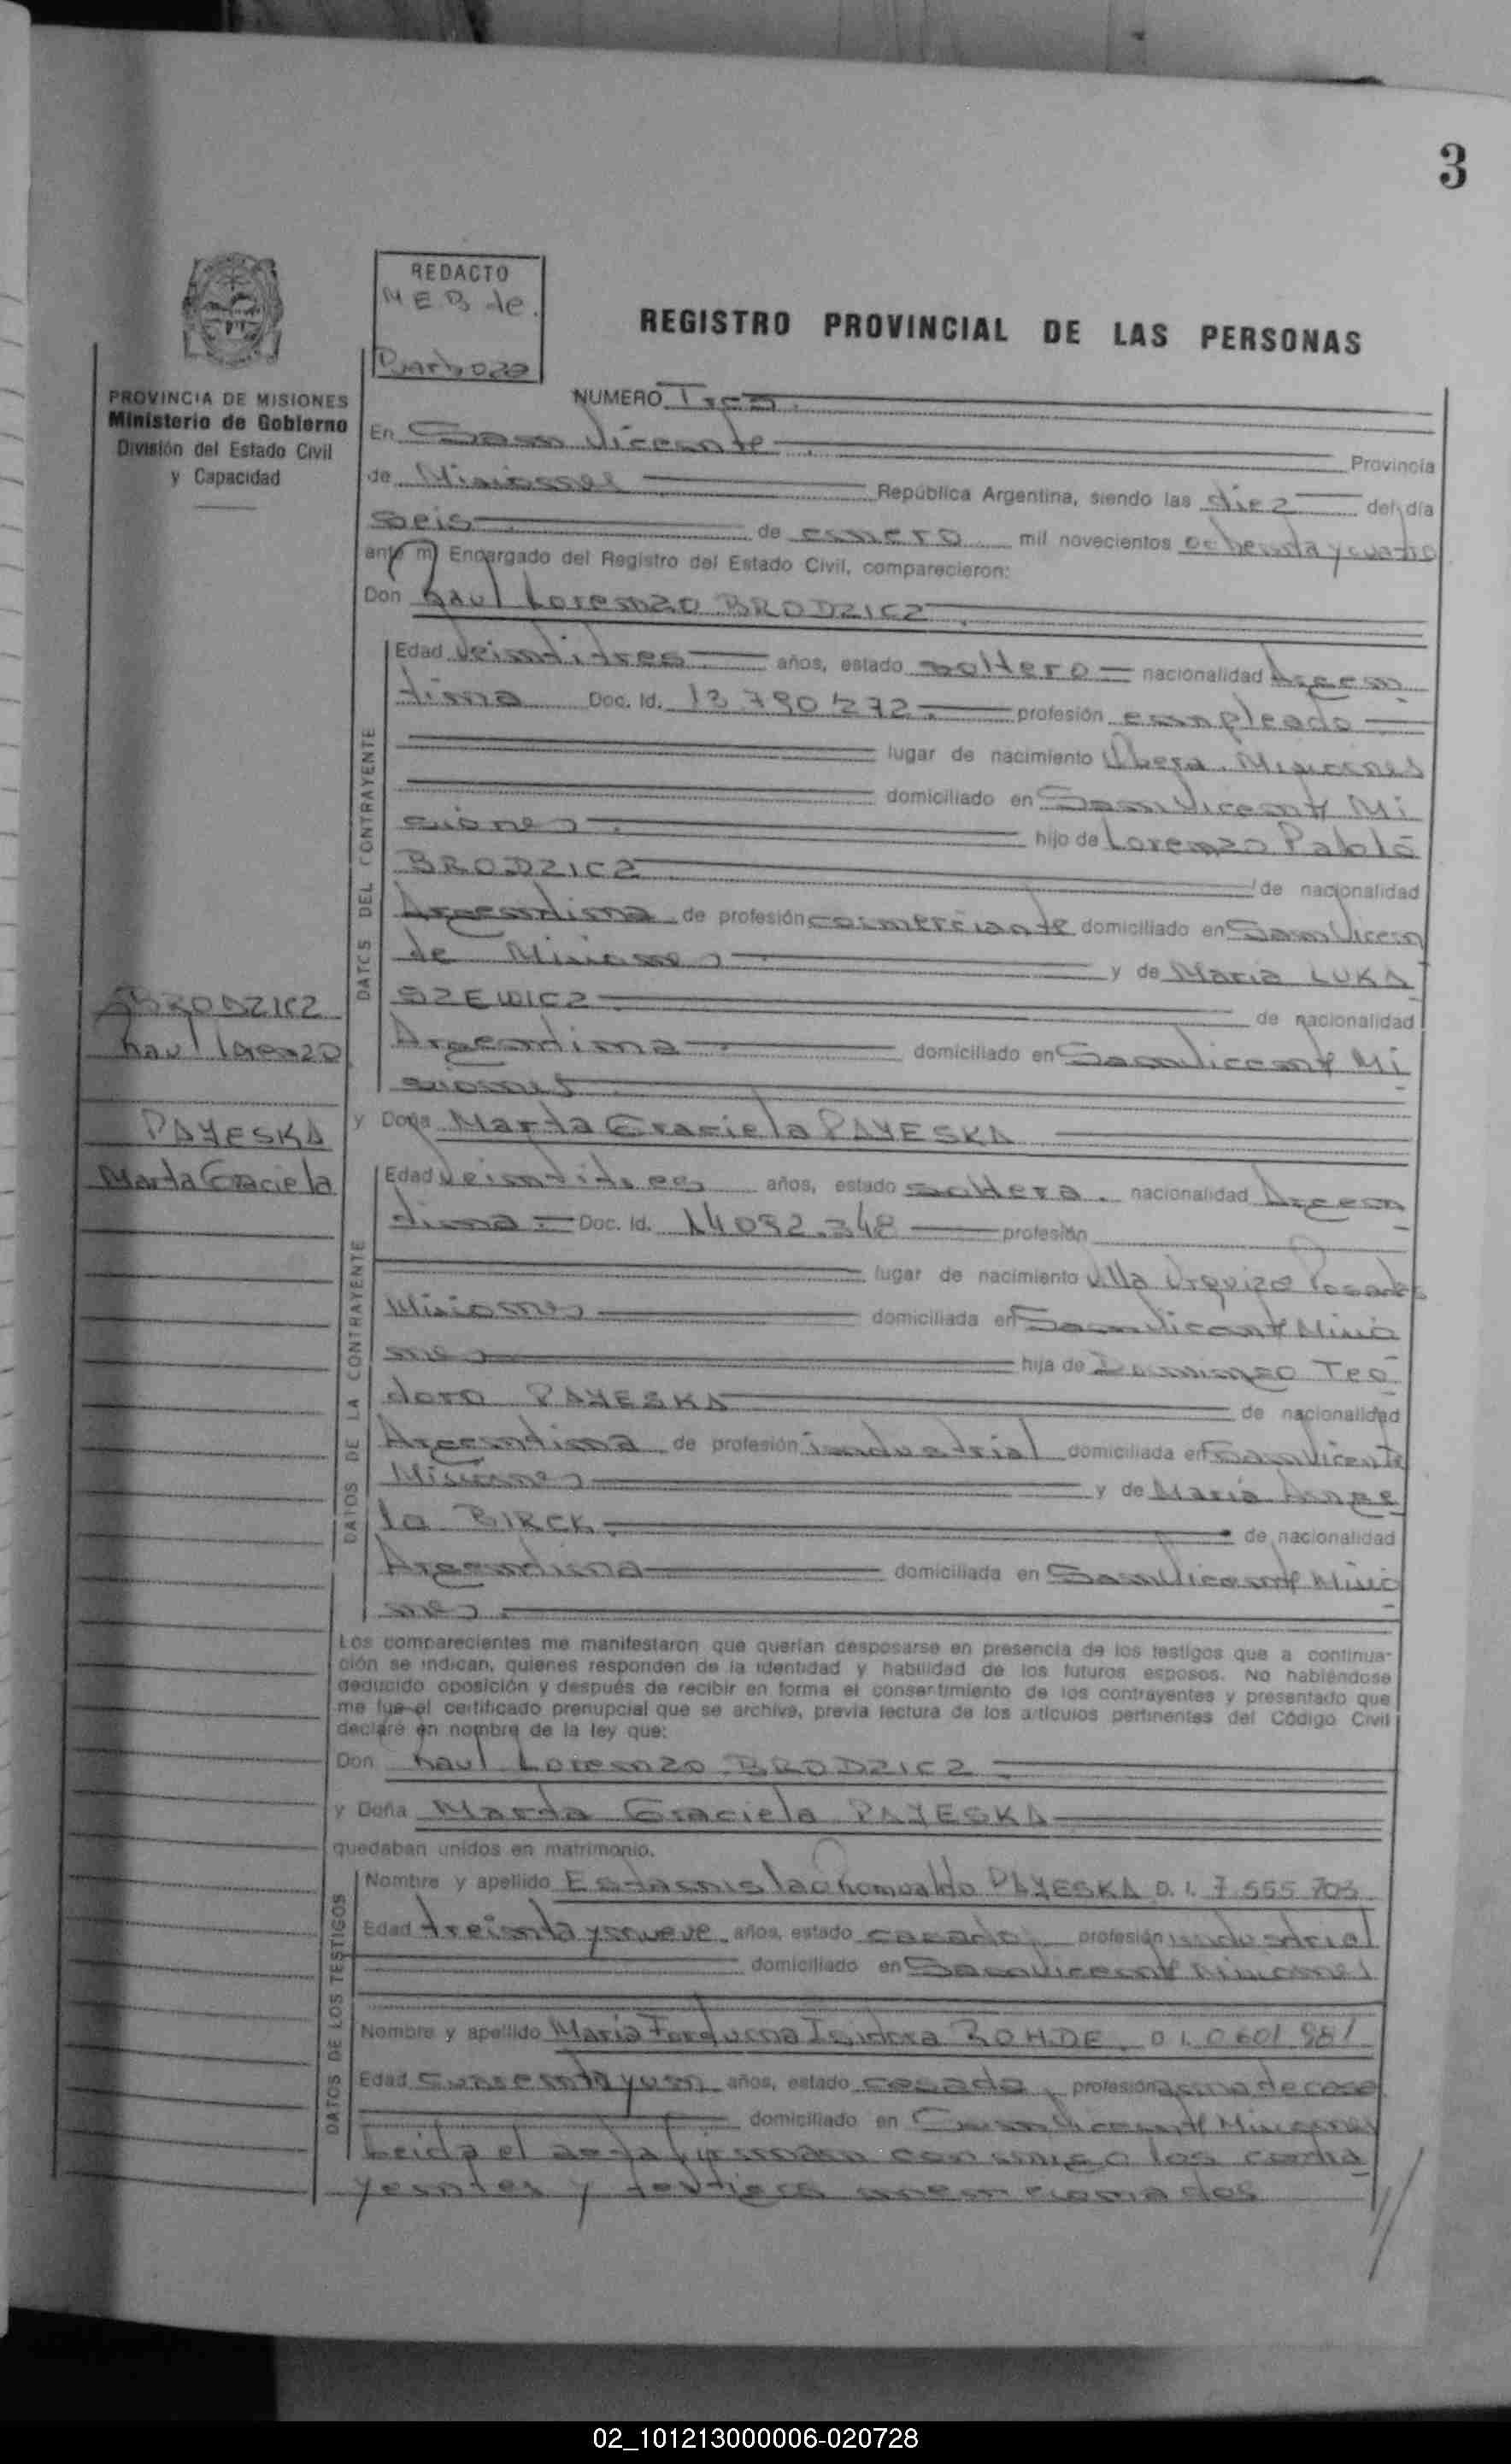 3
REDACTO
M E B de
REGISTRO PROVINCIAL DE LAS PERSONAS
PROVINCIA DE MISIONES
Ministerio de Gobierno
División del Estado Civil
y Capacidad
NUMERO Tres
En San Vicente Provincia
de Misiones República Argentina, siendo las diez del día
seis de enero mil novecientos ochenta y cuatro
ante mí Encargado del Registro del Estado Civil, comparecieron:
Don Raul Lorenzo BRODZICZ
DATOS DEL CONTRAYENTE
Edad veintitres años, estado soltero nacionalidad Argen
tina Doc. Id. 13 790 272 profesión empleado
lugar de nacimiento Obera. Misiones
domiciliado en San Vicente Mi
siones hijo de Lorenzo Pablo
BRODZICZ de nacionalidad
Argentina de profesión comerciante domiciliado en San Vicen
te Misiones y de Maria LUKA
SZEWICZ de nacionalidad
Argentina domiciliado en San Vicente Mi
siones
BRODZICZ
Raul Lorenzo
PAYESKA
Marta Graciela
y Doña Marta Graciela PAYESKA
DATOS DE LA CONTRAYENTE
Edad veintitres años, estado soltera. nacionalidad Argen
tina Doc. Id. 14 092.348 profesión
lugar de nacimiento Villa Urquiza Posadas
Misiones domiciliada en San Vicente Misio
nes hija de Domingo Teo
doro PAYESKA de nacionalidad
Argentina de profesión industrial domiciliada en San Vicente
Misiones y de Maria Ange
la BIRCK de nacionalidad
Argentina domiciliada en San Vicente Misio
nes
Los comparecientes me manifestaron que querían desposarse en presencia de los testigos que a continua-
ción se indican, quienes responden de la identidad y habilidad de los futuros esposos. No habiéndose
deducido oposición y después de recibir en forma el consentimiento de los contrayentes y presentado que
me fue el certificado prenupcial que se archiva, previa lectura de los artículos pertinentes del Código Civil
declaré en nombre de la ley que:
Don Raul Lorenzo BRODZICZ
y Doña Marta Graciela PAYESKA
quedaban unidos en matrimonio.
DATOS DE LOS TESTIGOS
Nombre y apellido Estanislao Romualdo PAYESKA D. I. 7 555 703
Edad treinta y nueve años, estado casado profesión industrial
domiciliado en San Vicente Misiones
Nombre y apellido Maria Isidora ROHDE D I. 0 601 981
Edad y un años, estado casada, profesión ama de casa
domiciliado en San Vicente Misiones
Leida el acta firman conmigo los contra
yentes y testigos mencionados
02_101213000006-020728